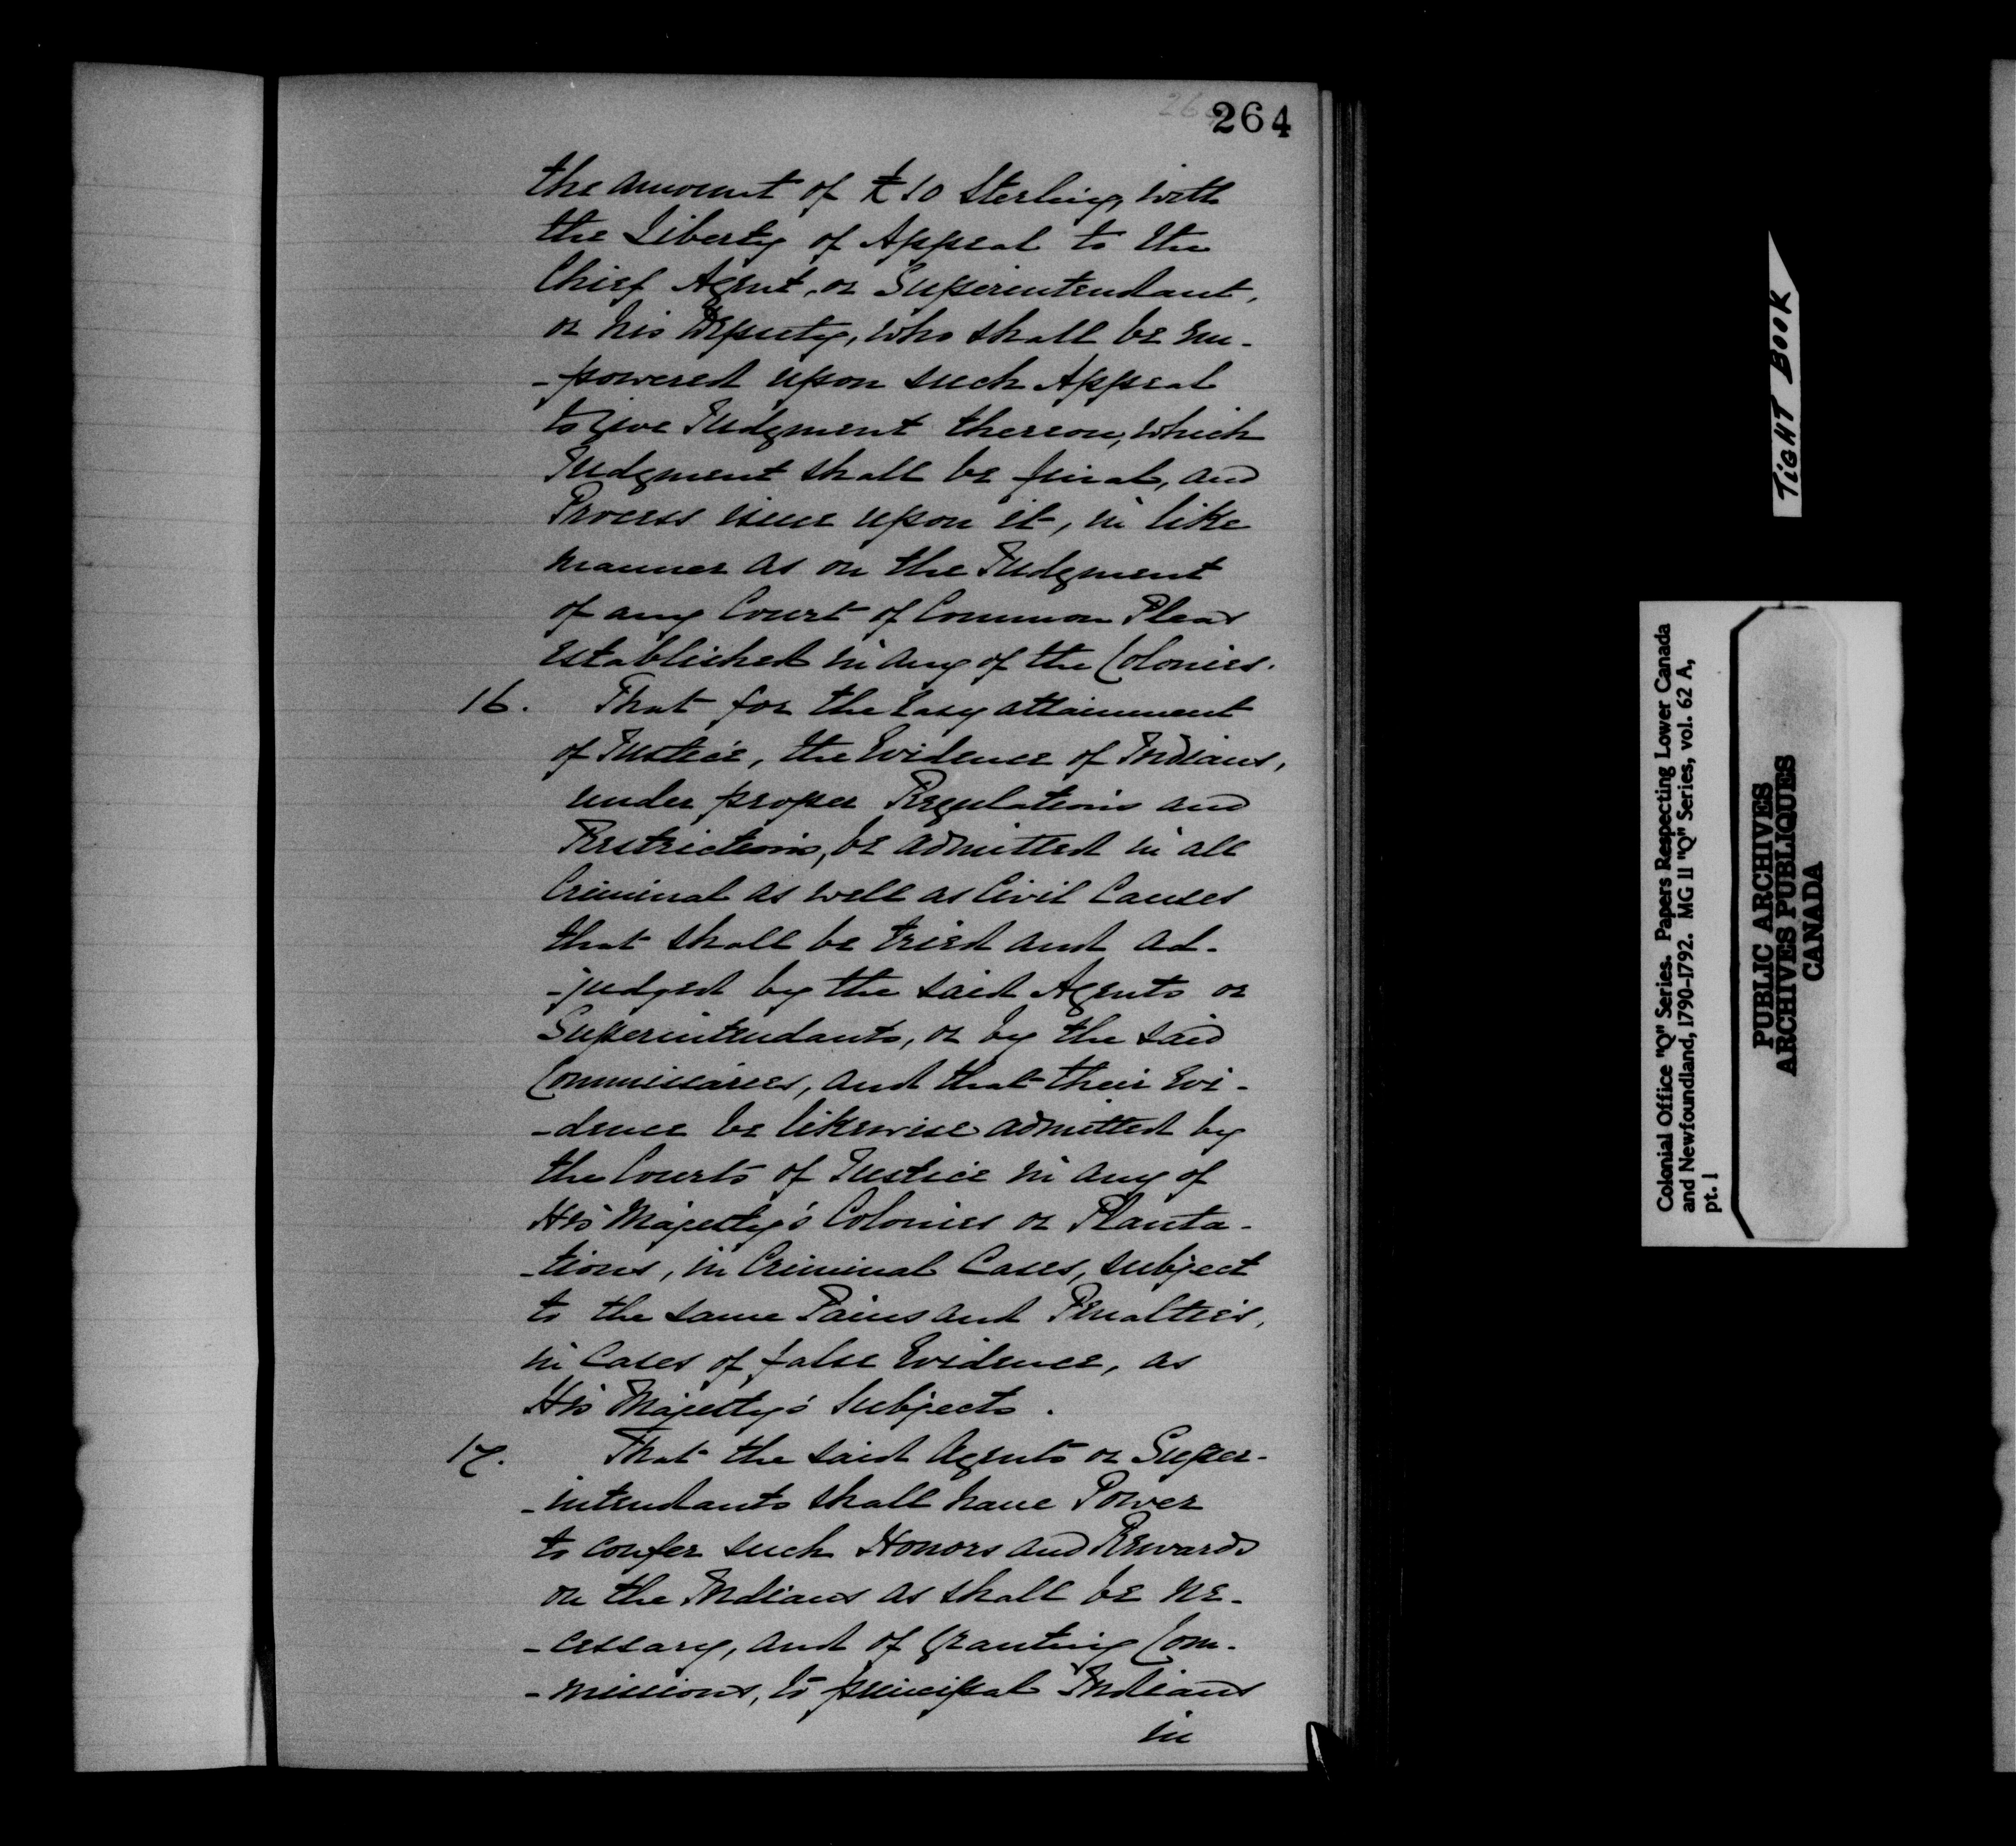 264
the amount of £10 Sterling, with
the Liberty of Appeal to the
Chief Agent, or Superintendant,
or his Deputy, who shall be em-
-powered upon such Appeal
to give Judgment thereon, which
Judgment shall be final, and
Process issue upon it, in like
manner as on the Judgment
of any Court of Common Pleas
established in any of the Colonies.
16. That for the Easy attainment
of Justice, the Evidence of Indians,
under proper Regulations and
Restrictions, be admitted in all
Criminal as well as Civil Causes
that shall be tried and ad-
-judged by the said Agents or
Superintendants, or by the said
Commissaries, and that their Evi-
-dence be likewise admitted by
the Courts of Justice in any of
His Majesty's Colonies or Planta-
-tions, in Criminal Cases, subject
to the same Pains and Penalties,
in Cases of false Evidence, as
His Majesty's Subjects.
17. That the said Agents or Super-
-intendants shall have Power
to confer such Honors and Rewards
on the Indians as shall be ne-
-cessary, and of granting Com-
-missions, to principal Indians
in
TIGHT BOOK
Colonial Office "Q" Series. Papers Respecting Lower Canada
and Newfoundland, 1790-1792. MG 11 "Q" Series, vol. 62 A,
pt. 1
PUBLIC ARCHIVES
ARCHIVES PUBLIQUES
CANADA